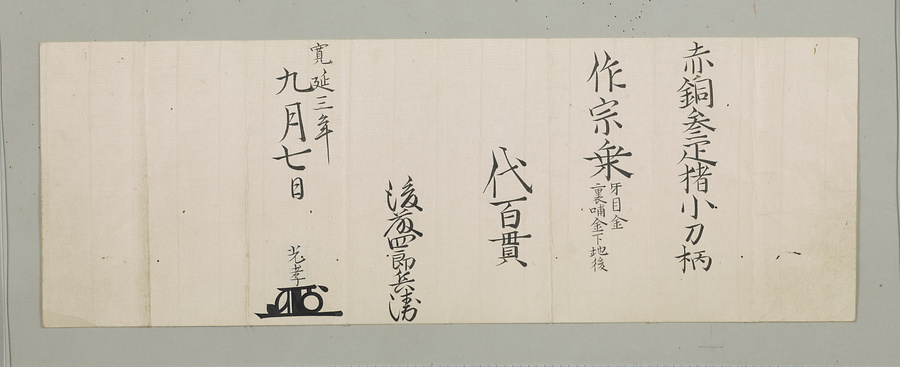 赤銅叁疋猪小刀柄
作宗乗
牙目金
裏哺金下地後
代百貫
後藤四郎兵衛
寛延三年
九月七日
光孝